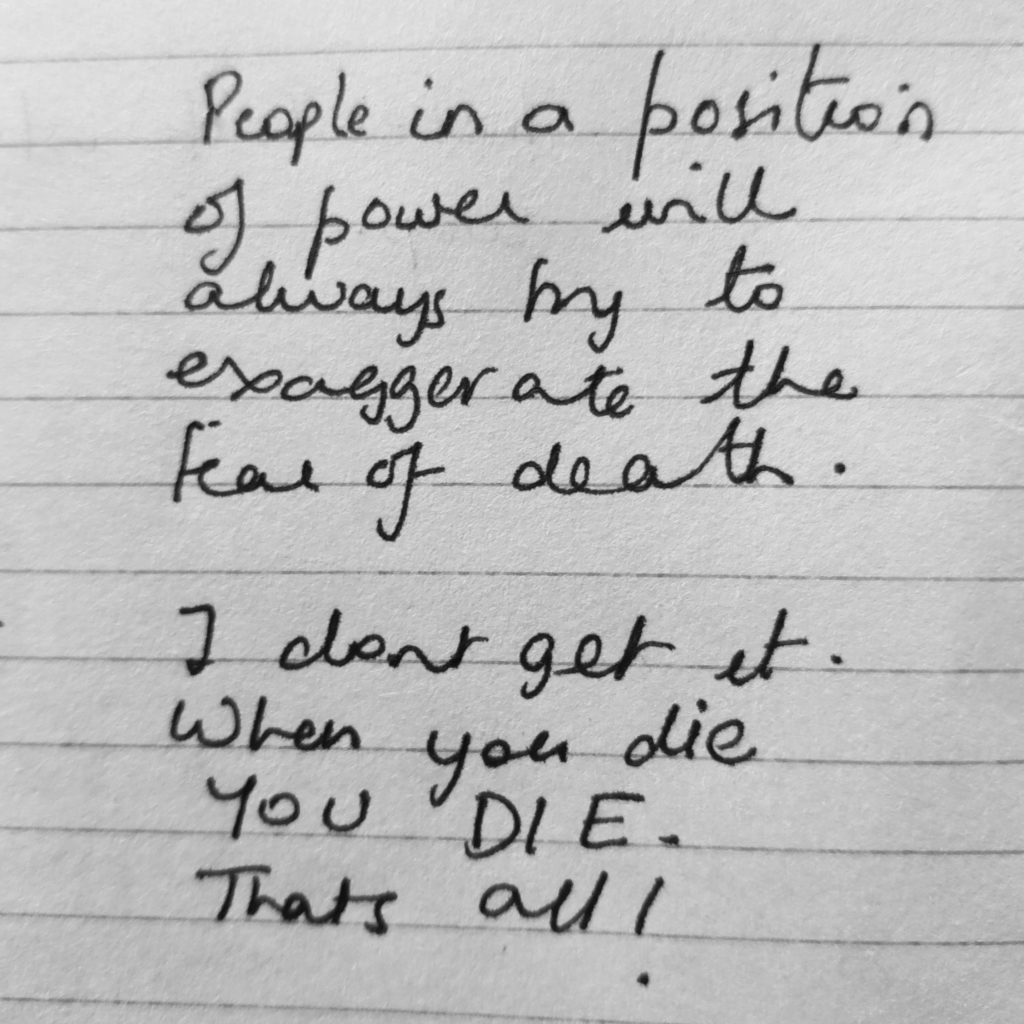 People in a position
of power will
always try to
exaggerate the
fear of death.
I dont get it.
When you die
YOU DIE.
Thats all!